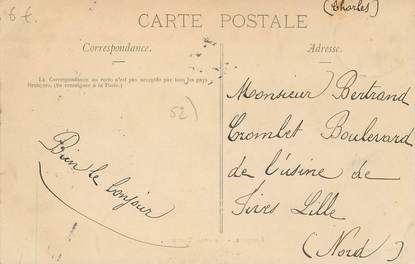 6 €
(Charles)
CARTE POSTALE
Correspondance.
Adresse.
La Correspondance au recto n'est pas acceptée par tous les pays
étrangers. (Se renseigner à la Poste.)
52)
Bien le bonjour
Monsieur Bertrand
Crombet Boulevard
de l'usine de
Fives Lille
(Nord)